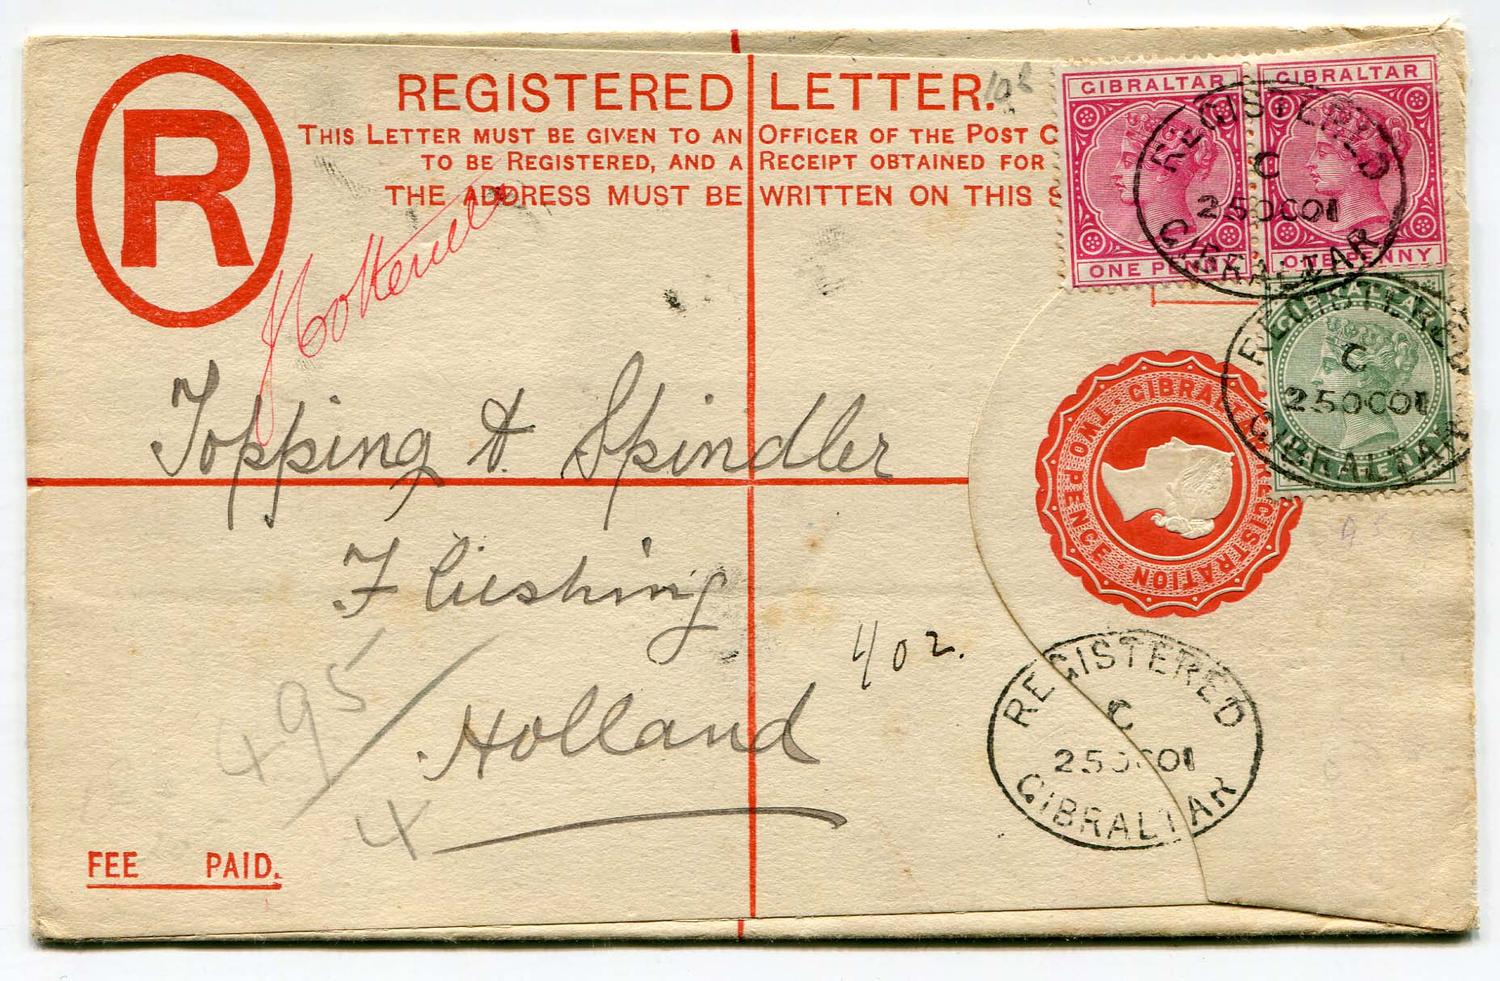 R
REGISTERED LETTER.
THIS LETTER MUST BE GIVEN TO AN OFFICER OF THE POST
TO BE REGISTERED, AND A RECEIPT OBTAINED FOR
THE ADDRESS MUST BE WRITTEN ON THIS
GIBRALTAR
ONE PENNY
GIBRALTAR
ONE PENNY
REGISTERED
C
25OC01
GIBRALTAR
GIBRALTAR
REGISTERED
C
25OC01
GIBRALTAR
GIBRALTAR REGISTRATION
TWO PENCE
Topping & Spindler
Flushing
Holland
402.
495
4
REGISTERED
C
25OC01
GIBRALTAR
FEE PAID.